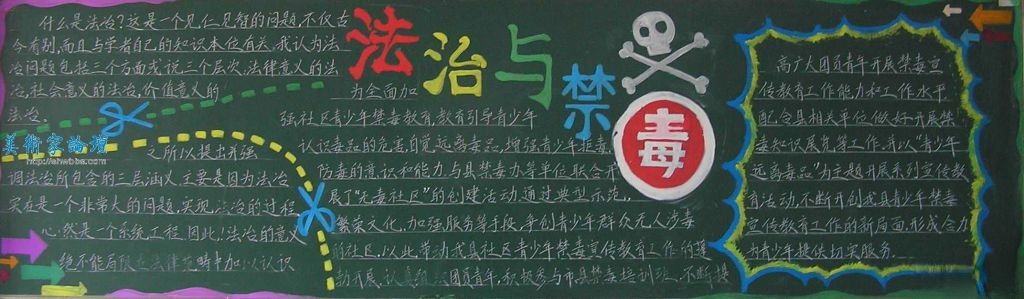 什么是法治?这是一个见仁见智的问题,不仅古
今有别,而且与学者自己的知识本位有关。我认为法
治问题包括三个方面或说三个层次,法律意义的法
治,社会意义的法治,价值意义的
法治。
之所以提出并强
调法治所包含的三层涵义,主要是因为法治
实在是一个非常大的问题,实现法治的过程
心然是一个系统工程,因此,法治的意义
绝不能局限在法律范畴中加以认识
美術室論壇
法治与禁毒
为全面加
强社区青少年禁毒教育,教育引导青少年
认识毒品的危害,自觉远离毒品,增强青少年拒毒
防毒的意识和能力,与县禁毒办等单位联合开
展了“无毒社区”的创建活动,通过典型示范,
繁荣文化,加强服务等手段,争创青少年群众无人涉毒
的社区,以此带动我县社区青少年禁毒宣传教育工作的蓬
勃开展,认真组织团员青年,积极参与市县禁毒培训班,不断提
高广大团员青年开展禁毒宣
传教育工作能力和工作水平
配合县相关单位做好开展禁
毒知识展览等工作,并以“青少年
远离毒品”为主题开展系列宣传教
育活动,不断开创我县青少年禁毒
宣传教育工作的新局面,形成合力
为青少年提供切实服务……